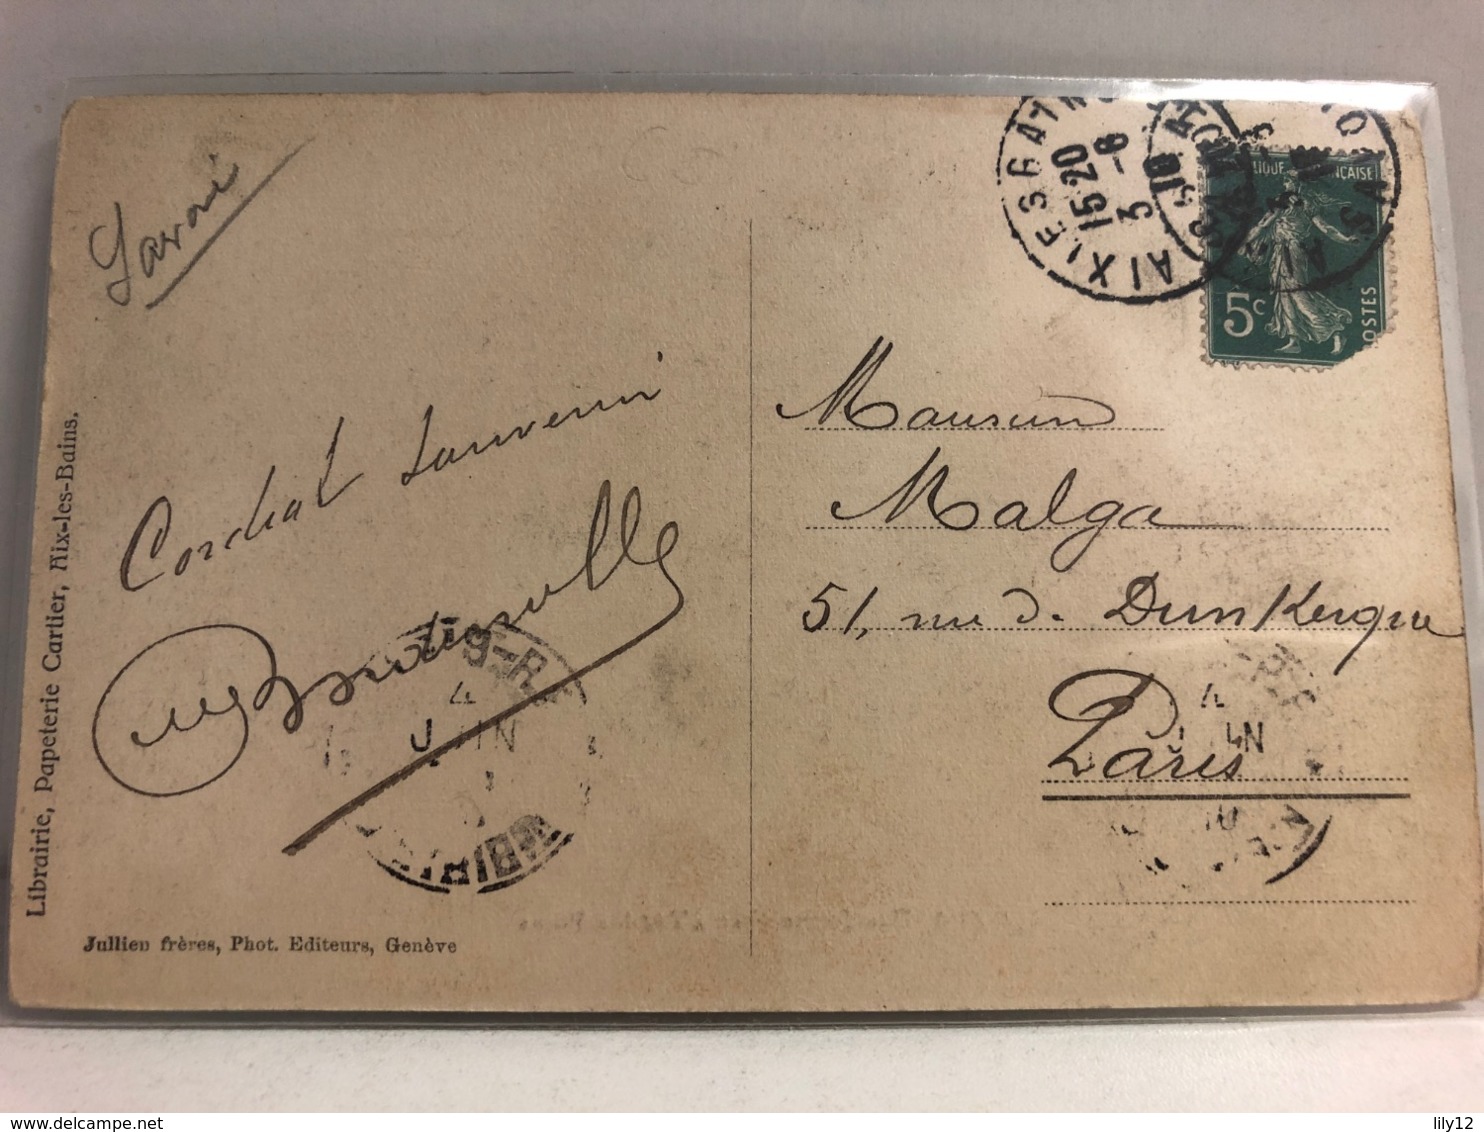 Savoie
AIX LES BAINS
15 20
3 - 6
10
AIX
SAVOIE
RÉPUBLIQUE FRANÇAISE
5c
POSTES
Cordial souvenir
Monsieur
Malga
51, rue de Dunkerque
Paris
4
JUIN
4
JUIN
10
Librairie, Papeterie Cartier, Aix-les-Bains.
Jullien frères, Phot. Editeurs, Genève
lily12